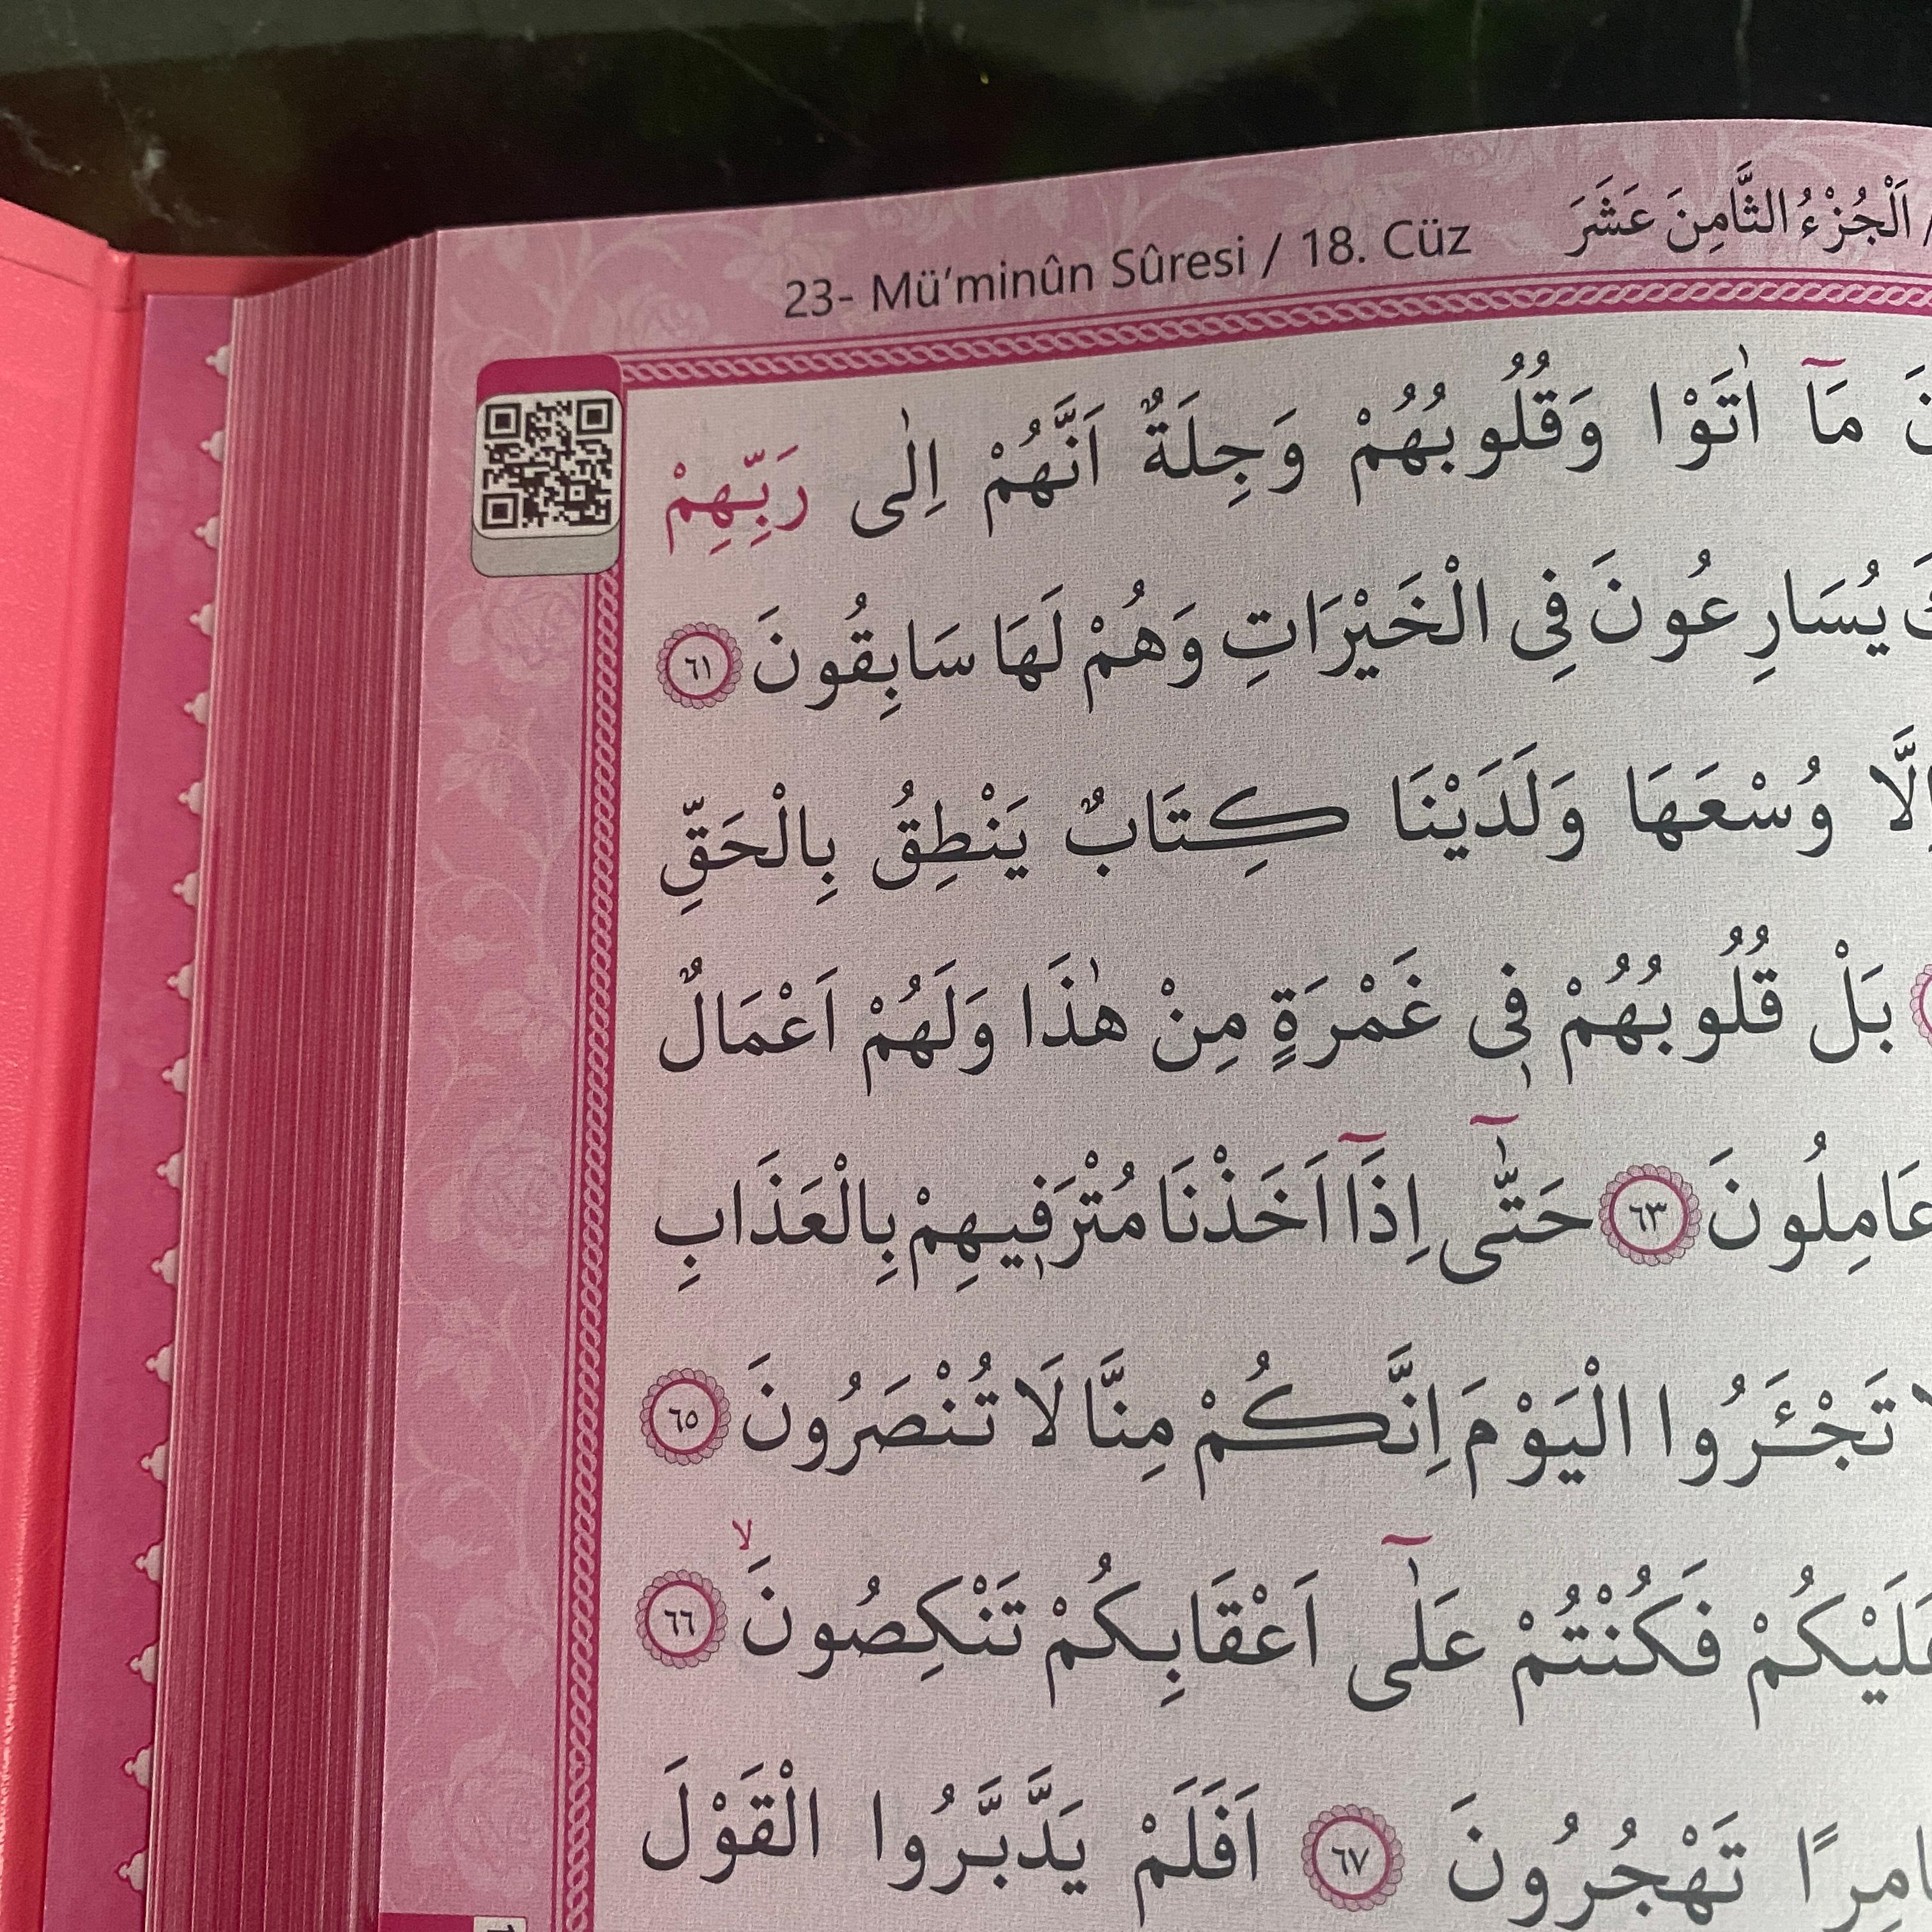 23- Mü'minûn Sûresi / 18. Cüz اَلْجُزْءُ الثَّامِنَ عَشَرَ /
مَٓا اٰتَوْا وَقُلُوبُهُمْ وَجِلَةٌ اَنَّهُمْ اِلٰى رَبِّهِمْ
يُسَارِعُونَ فِى الْخَيْرَاتِ وَهُمْ لَهَا سَابِقُونَ ٦١
اِلَّا وُسْعَهَا وَلَدَيْنَا كِتَابٌ يَنْطِقُ بِالْحَقِّ
بَلْ قُلُوبُهُمْ فٖى غَمْرَةٍ مِنْ هٰذَا وَلَهُمْ اَعْمَالٌ
عَامِلُونَ ٦٣ حَتّٰٓى اِذَٓا اَخَذْنَا مُتْرَفٖيهِمْ بِالْعَذَابِ
تَجْـَٔرُوا الْيَوْمَ اِنَّكُمْ مِنَّا لَا تُنْصَرُونَ ٦٥
عَلَيْكُمْ فَكُنْتُمْ عَلٰٓى اَعْقَابِكُمْ تَنْكِصُونَۙ ٦٦
سَامِرًا تَهْجُرُونَ ٦٧ اَفَلَمْ يَدَّبَّرُوا الْقَوْلَ